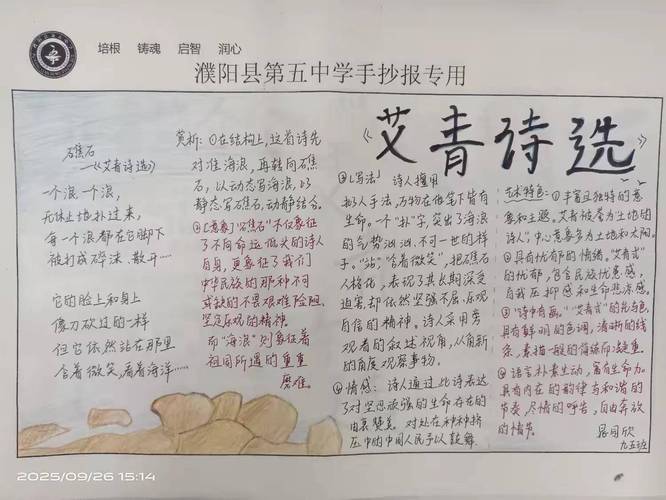 培根 铸魂 启智 润心
濮阳县第五中学手抄报专用
《艾青诗选》
礁石
——《艾青诗选》
一个浪,一个浪,
无休止地扑过来,
每一个浪都在它脚下
被打成碎沫、散开……
它的脸上和身上
像刀砍过的一样
但它依然站在那里
含着微笑,看着海洋……
赏析:①在结构上,这首诗先
对准海浪,再转向礁
石,以动态写海浪,以
静态写礁石,动静结合。
②[意象]"礁石"不仅象征
了不向命运低头的诗人
自身,更象征了我们
中华民族的那种不可
或缺的不畏艰难险阻、
坚定乐观的精神。
而"海浪"则象征着
祖国所遇的重重
磨难。
③[写法] 诗人擅用
拟人手法,万物在他笔下皆有
生命。一个"扑"字,突出了海浪
的气势汹汹、不可一世的样
子。"站""含着微笑",把礁石
人格化,表现了其长期深受
迫害,却依然坚强不屈、乐观
自信的精神。诗人采用旁
观者的叙述视角,从角新
的角度观察事物。
④情感:诗人通过此诗表达
了对坚忍顽强的生命存在的
由衷赞美。对处在种种挤
压中的中国人民予以鼓舞
艺术特色:①丰富且独特的意
象和主题。艾青被誉为土地的
诗人",中心意象多为土地和太阳。
②具有忧郁的情绪。"艾青式"
的忧郁,包含民族忧患感,
自我压抑感和生命悲凉感。
③"诗中有画。""艾青式"的光与色,
具有鲜明的色调,清晰的线
条,素描一般的简练而凝重。
④语言朴素生动,富有生命力。
具有内在的韵律与和谐的
节奏,尽情的呼告,自由奔放
的情节。
九五班
2025/09/26 15:14